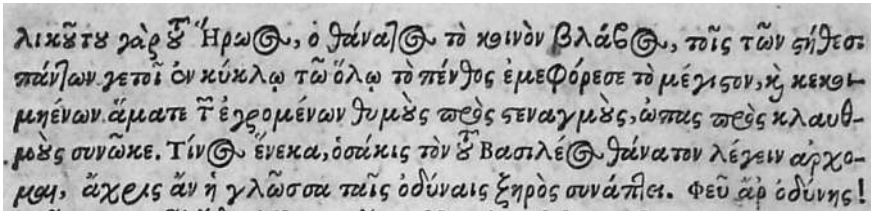 λικοῦτυ γὰρ τοῦ Ἥρωος, ὁ θάνατος τὸ κοινὸν βλάβος, τοῖς τῶν στήθεσι
πάντων γετοῖ ὀν κύκλῳ τῶ ὅλῳ τὸ πένθος ἐμεφόρεσε τὸ μέγιστον, καὶ κεκοι-
μηένων ἅματε τῶν ἐγρομένων θυμοὺς πρὸς στεναγμοὺς, ὦπας πρὸς κλαυθ-
μοὺς συνῶκε. Τίνος ἕνεκα, ὁσάκις τὸν τοῦ Βασιλέος θάνατον λέγειν ἄρχο-
μαι, ἄχρις ἂν ἡ γλῶσσα ταῖς ὀδύναις ξηρὸς συνάπτει. Φεῦ ἂρ ὀδύνης!